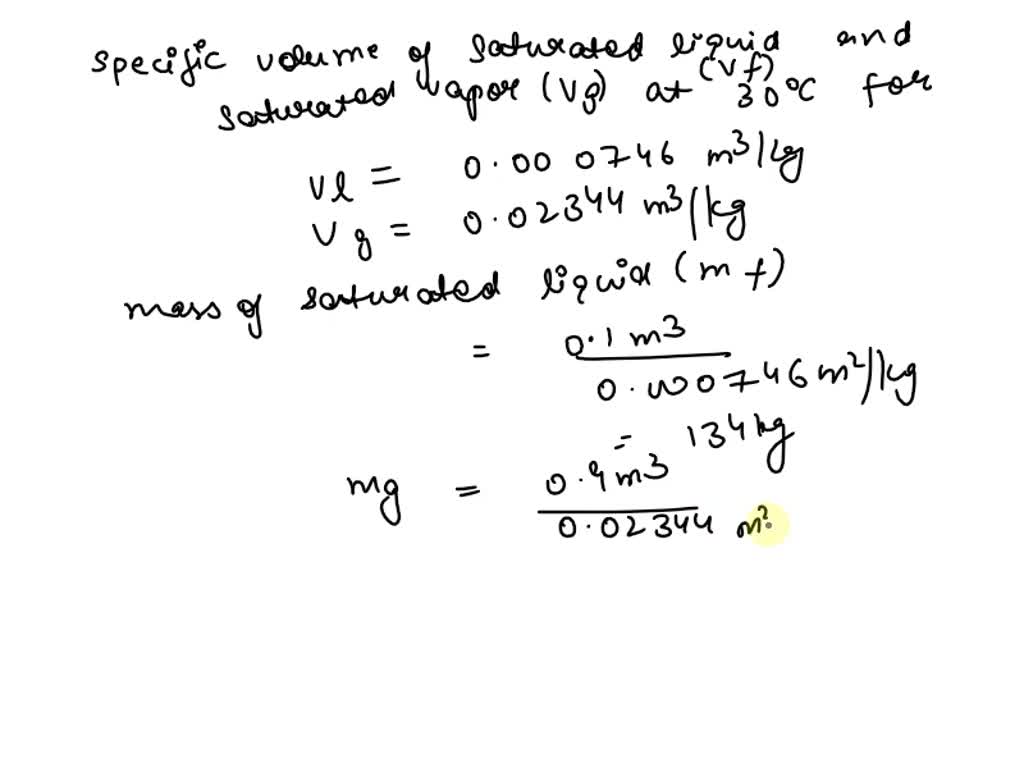 specific volume of saturated liquid and
(vf)
saturated vapor (vg) at 30°C for
vl = 0.000746 m3/kg
vg = 0.02344 m3/kg
mass of saturated liquid (mf)
= 0.1 m3
0.000746 m2/kg
= 134 kg
mg = 0.9 m3
0.02344 m3